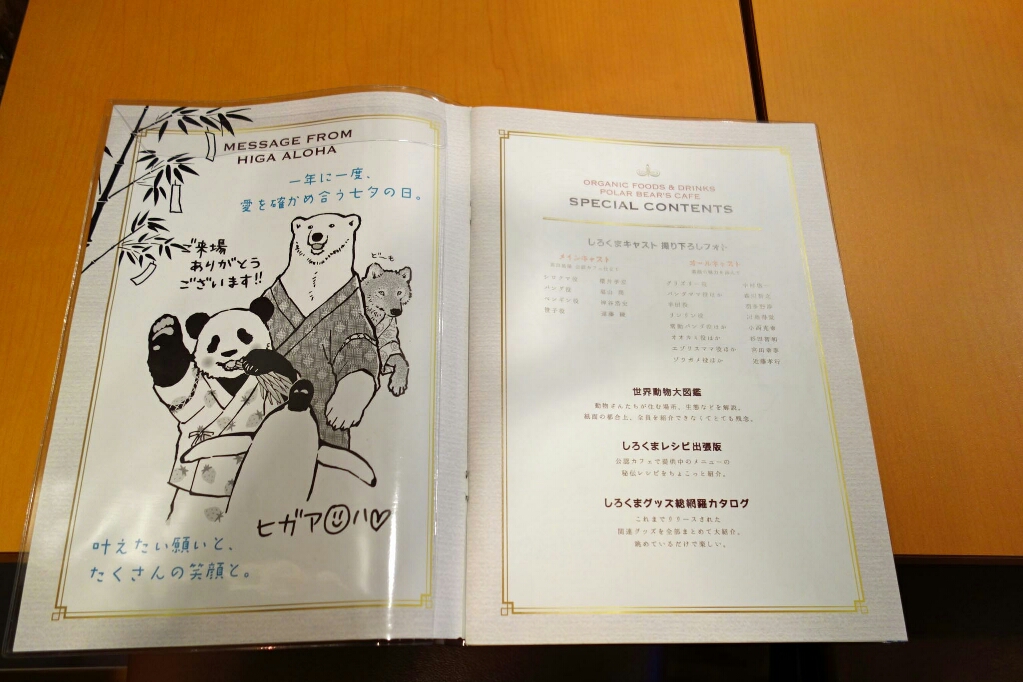 MESSAGE FROM
HIGA ALOHA
一年に一度、
愛を確かめ合う七夕の日。
ご来場
ありがとう
ございます!!
ビーも
ヒガア☺ハ♡
叶えたい願いと、
たくさんの笑顔と。
ORGANIC FOODS & DRINKS
POLAR BEAR'S CAFE
SPECIAL CONTENTS
しろくまキャスト 撮り下ろしフォト
メインキャスト
ホールキャスト
シロクマ役
パンダ役
ペンギン役
笹子役
遠藤 綾
グリズリー役
パンダママ役ほか
半田役
リンリン役
常勤パンダ役ほか
オオカミ役ほか
エゾリスママ役ほか
ゾウガメ役ほか
近藤孝行
世界動物大図鑑
動物さんたちが住む場所、生態などを解説。
紙面の都合上、全員を紹介できなくてとても残念。
しろくまレシピ出張版
公認カフェで提供中のメニューの
秘伝レシピをちょこっと紹介。
しろくまグッズ総網羅カタログ
これまでリリースされた
関連グッズを全部まとめて大紹介。
眺めているだけで楽しい。